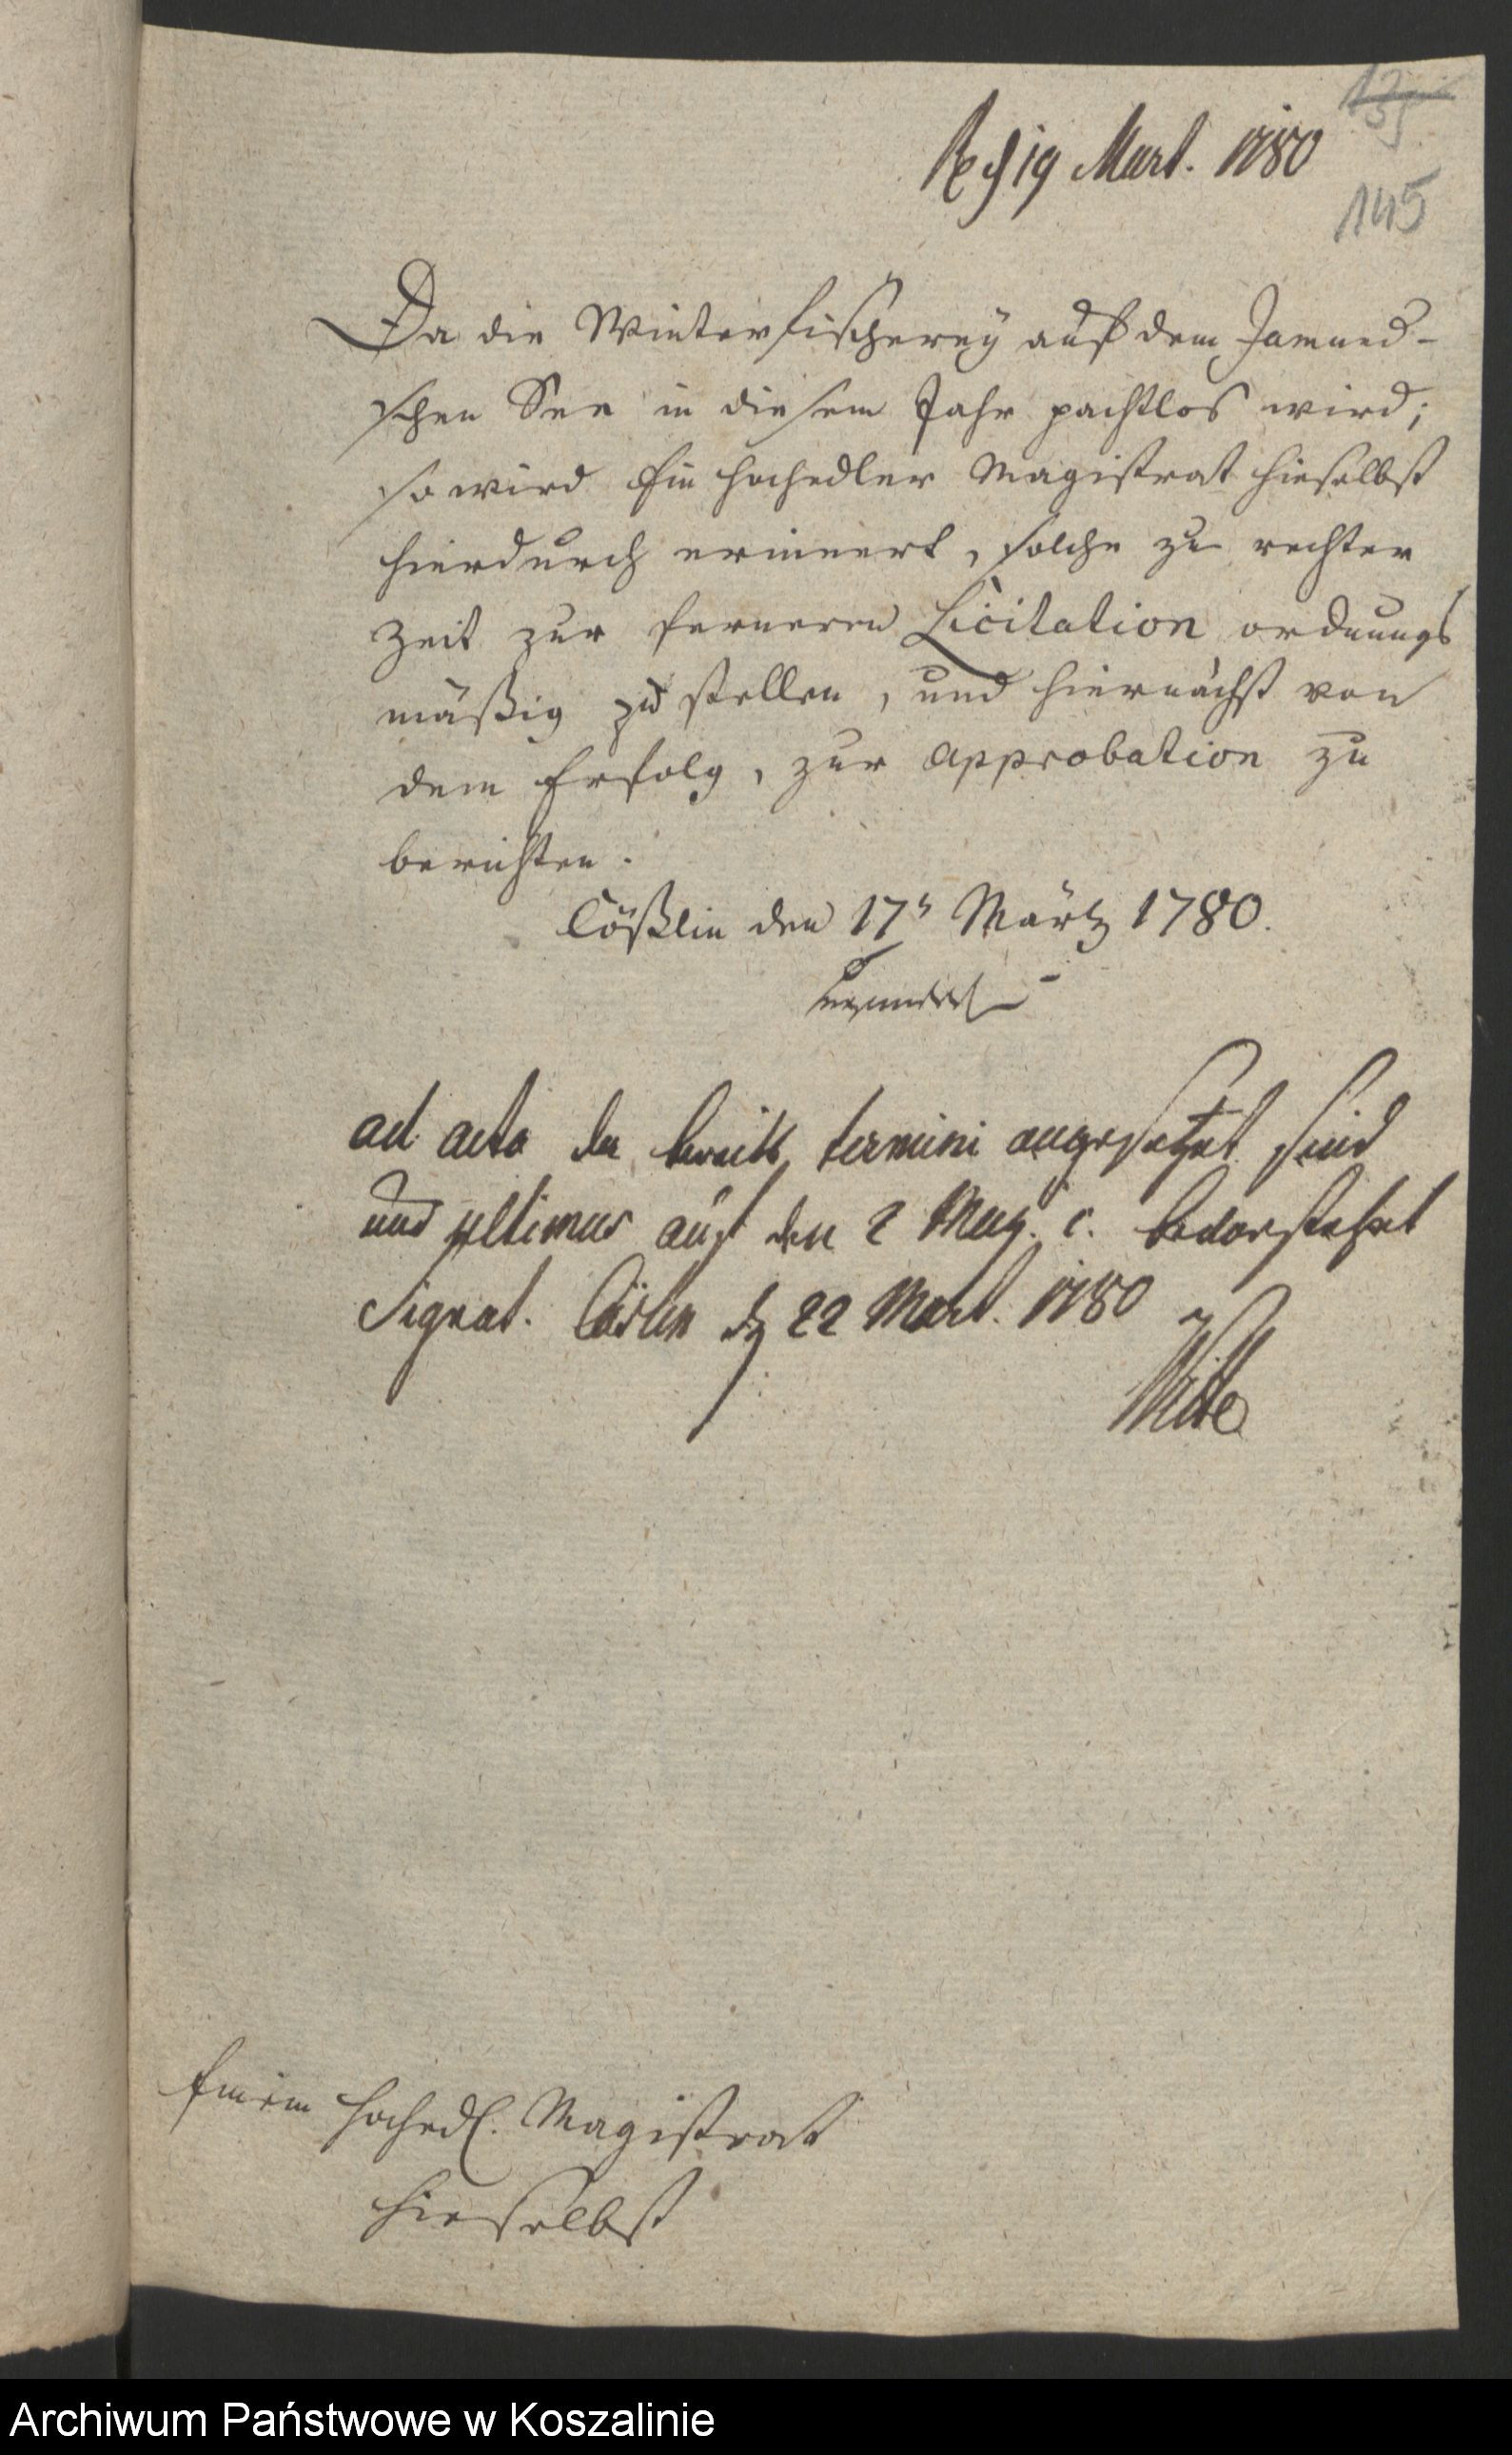 19 Mart. 1780
145
Da die Winterfischerey auf dem Jamund-
schen See in diesem Jahr pachtlos wird;
so wird Ein Hochedler Magistrat hieselbst
hierdurch erinnert, solche zu rechter
Zeit zur ferneren Licitation ordnungs
mäßig zu stellen, und hiernächst von
dem Erfolg, zur Approbation zu
berichten.
Cößlin den 17t März 1780.
ad acta da bereits termini angesetzet sind
und ultimus auf den 2 May. c. bevorstehet
Signat. Cöslin d 22 Mart. 1780
Witte
Einem Hochedl. Magistrat
hieselbst
Archiwum Państwowe w Koszalinie